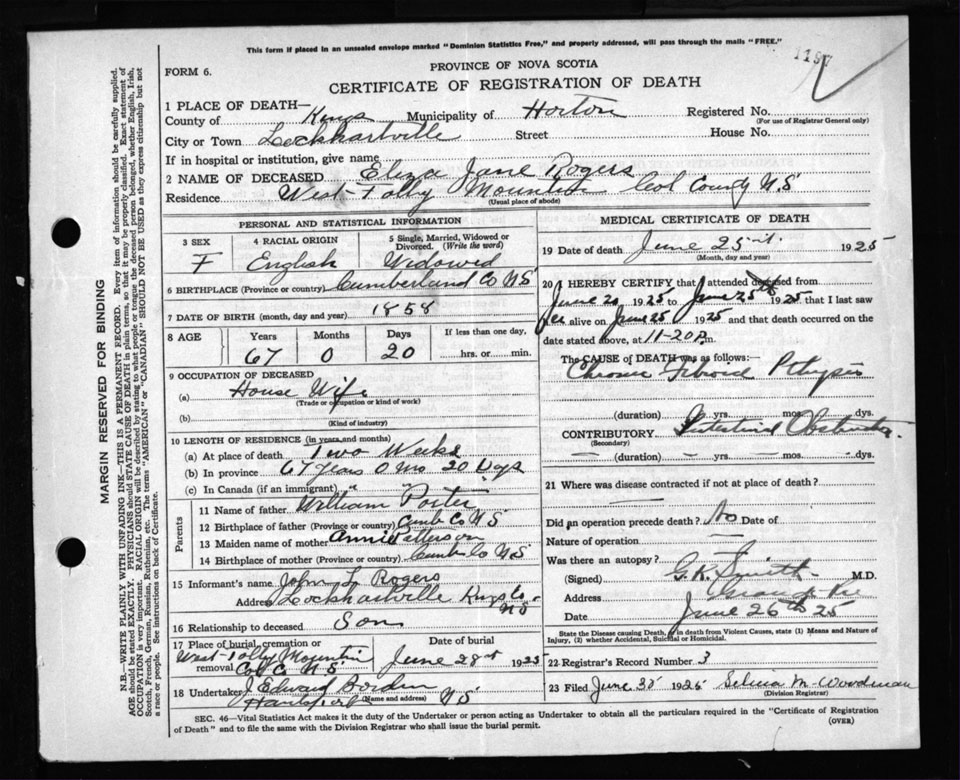 This form if placed in an unsealed envelope marked "Dominion Statistics Free," and properly addressed, will pass through the mails "FREE."
1197
PROVINCE OF NOVA SCOTIA
FORM 6.
CERTIFICATE OF REGISTRATION OF DEATH
1 PLACE OF DEATH—
County of Kings Municipality of Horton Registered No.
(For use of Registrar General only)
City or Town Lockhartville Street House No.
If in hospital or institution, give name
2 NAME OF DECEASED Eliza Jane Rogers
Residence West Folly Mountain Col County N.S
(Usual place of abode)
PERSONAL AND STATISTICAL INFORMATION
3 SEX
F
4 RACIAL ORIGIN
English
5 Single, Married, Widowed or Divorced. (Write the word)
Widowed
6 BIRTHPLACE (Province or country) Cumberland Co N S
7 DATE OF BIRTH (month, day and year) 1858
8 AGE Years Months Days If less than one day,
67 0 20 hrs. or min.
9 OCCUPATION OF DECEASED
(a) House Wife
(Trade or occupation or kind of work)
(b)
(Kind of industry)
10 LENGTH OF RESIDENCE (in years and months)
(a) At place of death Two Weeks
(b) In province 67 years 0 Mo 20 Dys
(c) In Canada (if an immigrant) " "
Parents
11 Name of father William Porter
12 Birthplace of father (Province or country) Cumb Co N S
13 Maiden name of mother Annie Patterson
14 Birthplace of mother (Province or country) Cumb Co N S
15 Informant's name John L Rogers
Address Lockhartville Kings Co.
NS
16 Relationship to deceased Son
17 Place of burial, cremation or removal
West Folly Mountain
Col Co N S
Date of burial
June 28 1925
18 Undertaker J Edward Borden
(Name and address)
Hantsport N S
MEDICAL CERTIFICATE OF DEATH
19 Date of death June 25 1925
(Month, day and year)
20 I HEREBY CERTIFY that I attended deceased from
June 20 1925 to June 25th 1925, that I last saw
her alive on June 25 1925 and that death occurred on the
date stated above, at 11-20 P.m.
The CAUSE OF DEATH was as follows:
Chronic Fibroid Pthysis
(duration) yrs. mos. dys.
CONTRIBUTORY Intestinal Obstruction
(Secondary)
(duration) — yrs. — mos. — dys.
21 Where was disease contracted if not at place of death?
Did an operation precede death? No Date of
Nature of operation —
Was there an autopsy? —
(Signed) G.K. Smith M.D.
Address Grand Pre
Date June 26th 25
State the Disease causing Death, or in death from Violent Causes, state (1) Means and Nature of Injury, (2) whether Accidental, Suicidal or Homicidal.
22 Registrar's Record Number 3
23 Filed June 30 1925 Selina M. Woodman
(Division Registrar)
SEC. 46—Vital Statistics Act makes it the duty of the Undertaker or person acting as Undertaker to obtain all the particulars required in the "Certificate of Registration
of Death" and to file the same with the Division Registrar who shall issue the burial permit. (OVER)
MARGIN RESERVED FOR BINDING
N.B.—WRITE PLAINLY WITH UNFADING INK—THIS IS A PERMANENT RECORD. Every item of information should be carefully supplied.
AGE should be stated EXACTLY. PHYSICIANS should STATE CAUSE OF DEATH in plain terms, so that it may be properly classified. Exact statement of
OCCUPATION is very important. RACIAL ORIGIN will be described by stating to what people or tongue the deceased person belonged, whether English, Irish,
Scotch, French, German, Russian, Ruthenian, etc. The terms "AMERICAN" or "CANADIAN" SHOULD NOT BE USED as they express citizenship but not
a race or people. See instructions on back of Certificate.